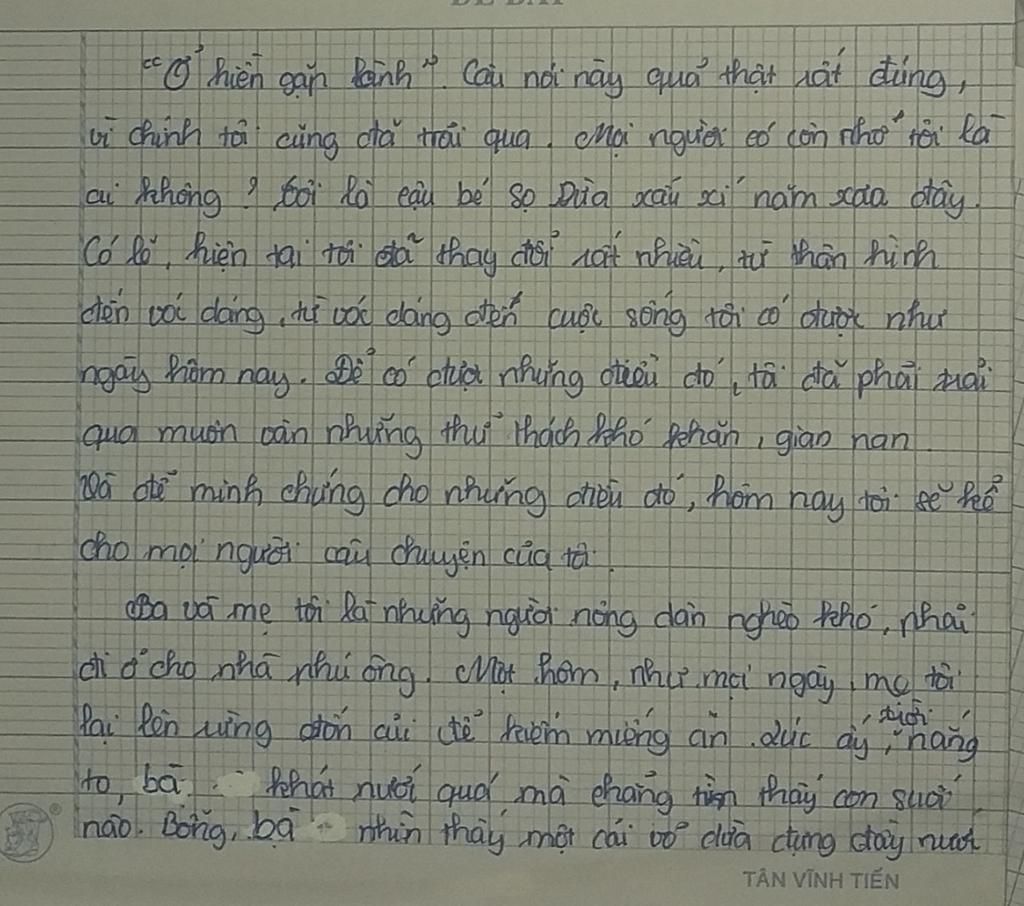 ĐỀ BÀI
"Ở hiền gặp lành". Câu nói này quả thật rất đúng,
vì chính tôi cũng đã trải qua. Mọi người có còn nhớ tôi là
ai không? Tôi là cậu bé Sọ Dừa xấu xí năm xưa đây.
Có lẽ, hiện tại tôi đã thay đổi rất nhiều, từ thân hình
đến vóc dáng, từ vóc dáng đến cuộc sống tôi có được như
ngày hôm nay. Để có được những điều đó, tôi đã phải trải
qua muôn vàn những thử thách khó khăn, gian nan.
Và để minh chứng cho những điều đó, hôm nay tôi sẽ kể
cho mọi người câu chuyện của tôi.
Ba và mẹ tôi là những người nông dân nghèo khó, phải
đi ở cho nhà phú ông. Một hôm, như mọi ngày, mẹ tôi
lại lên rừng đốn củi để kiếm miếng ăn. Lúc ấy, trời nắng
to, bà khát nước quá mà chẳng tìm thấy con suối
nào. Bỗng, bà nhìn thấy một cái vỏ dừa đựng đầy nước
TÂN VĨNH TIẾN